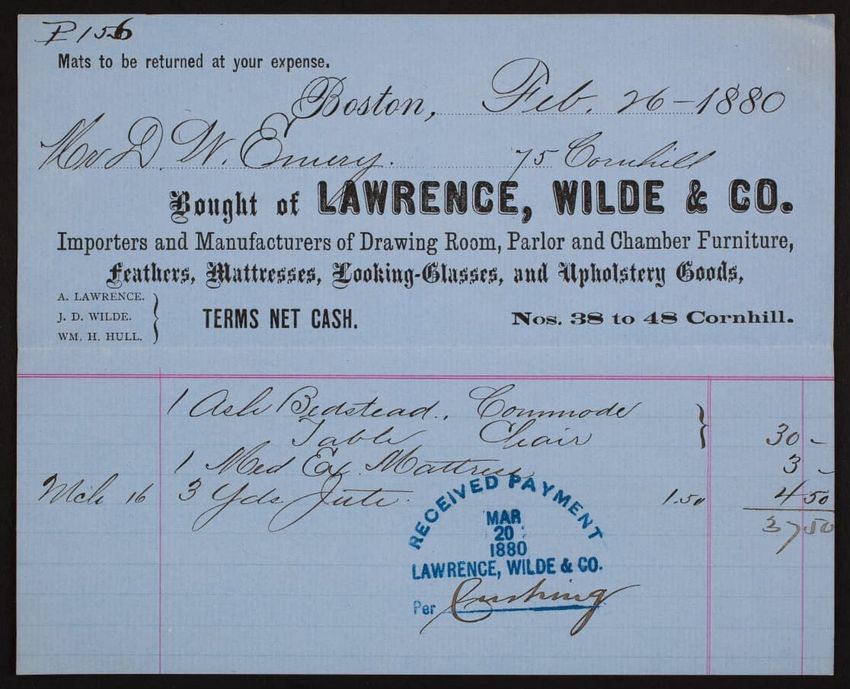 P 156
Mats to be returned at your expense.
Boston, Feb. 26 - 1880
Mr D. W. Emery. 75 Cornhill
Bought of LAWRENCE, WILDE & CO.
Importers and Manufacturers of Drawing Room, Parlor and Chamber Furniture,
Feathers, Mattresses, Looking-Glasses, and Upholstery Goods,
A. LAWRENCE.
J. D. WILDE.
WM. H. HULL.
TERMS NET CASH. Nos. 38 to 48 Cornhill.
1 Ash Bedstead., Commode
Table Chair 30 -
1 Med Ex. Mattress 3 -
Mch 16 3 Yds Jute. 1.50 4 50
37 50
RECEIVED PAYMENT
MAR
20
1880
LAWRENCE, WILDE & CO.
Per Cushing